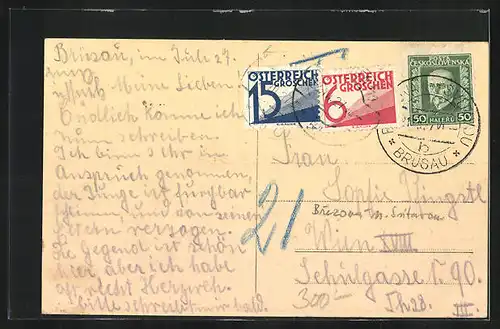 Brüsau, im Juli 27.
Meine Lieben!
Endlich komme ich
zum schreiben.
Ich bin sehr in
Anspruch genommen,
der Junge ist furchtbar
schlimm, und von seinen
Eltern verzogen.
Die Gegend ist schön
hier, aber ich habe
oft recht Herzweh.
bitte schreibt mir bald.
ÖSTERREICH
15 GROSCHEN
ÖSTERREICH
6 GROSCHEN
ČESKOSLOVENSKÁ
50 HALÉŘŮ 50
* BRÜSAU *
b
Frau
Sophie
Březová n. Svitavou
21
Wien XVIII
Schulgasse N. 90.
300
Th 28.
III.